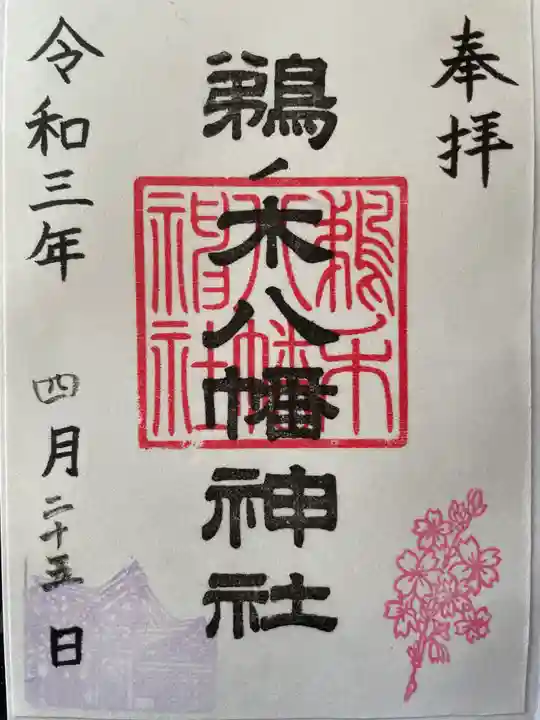 奉拝
鵜ノ木八幡神社
鵜木
八幡
神社
令和三年 四月二十五日